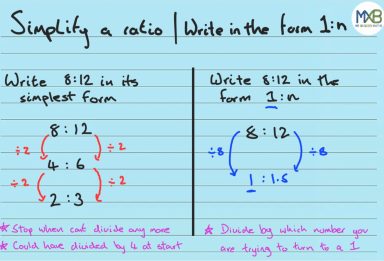 Simplify a ratio | Write in the form 1:n
MXB
Write 8:12 in its
simplest form
8 : 12
÷2 ÷2
4 : 6
÷2 ÷2
2 : 3
* Stop when cant divide any more
* Could have divided by 4 at start
Write 8:12 in the
form 1:n
8 : 12
÷8 ÷8
1 : 1.5
* Divide by which number you
are trying to turn to a 1